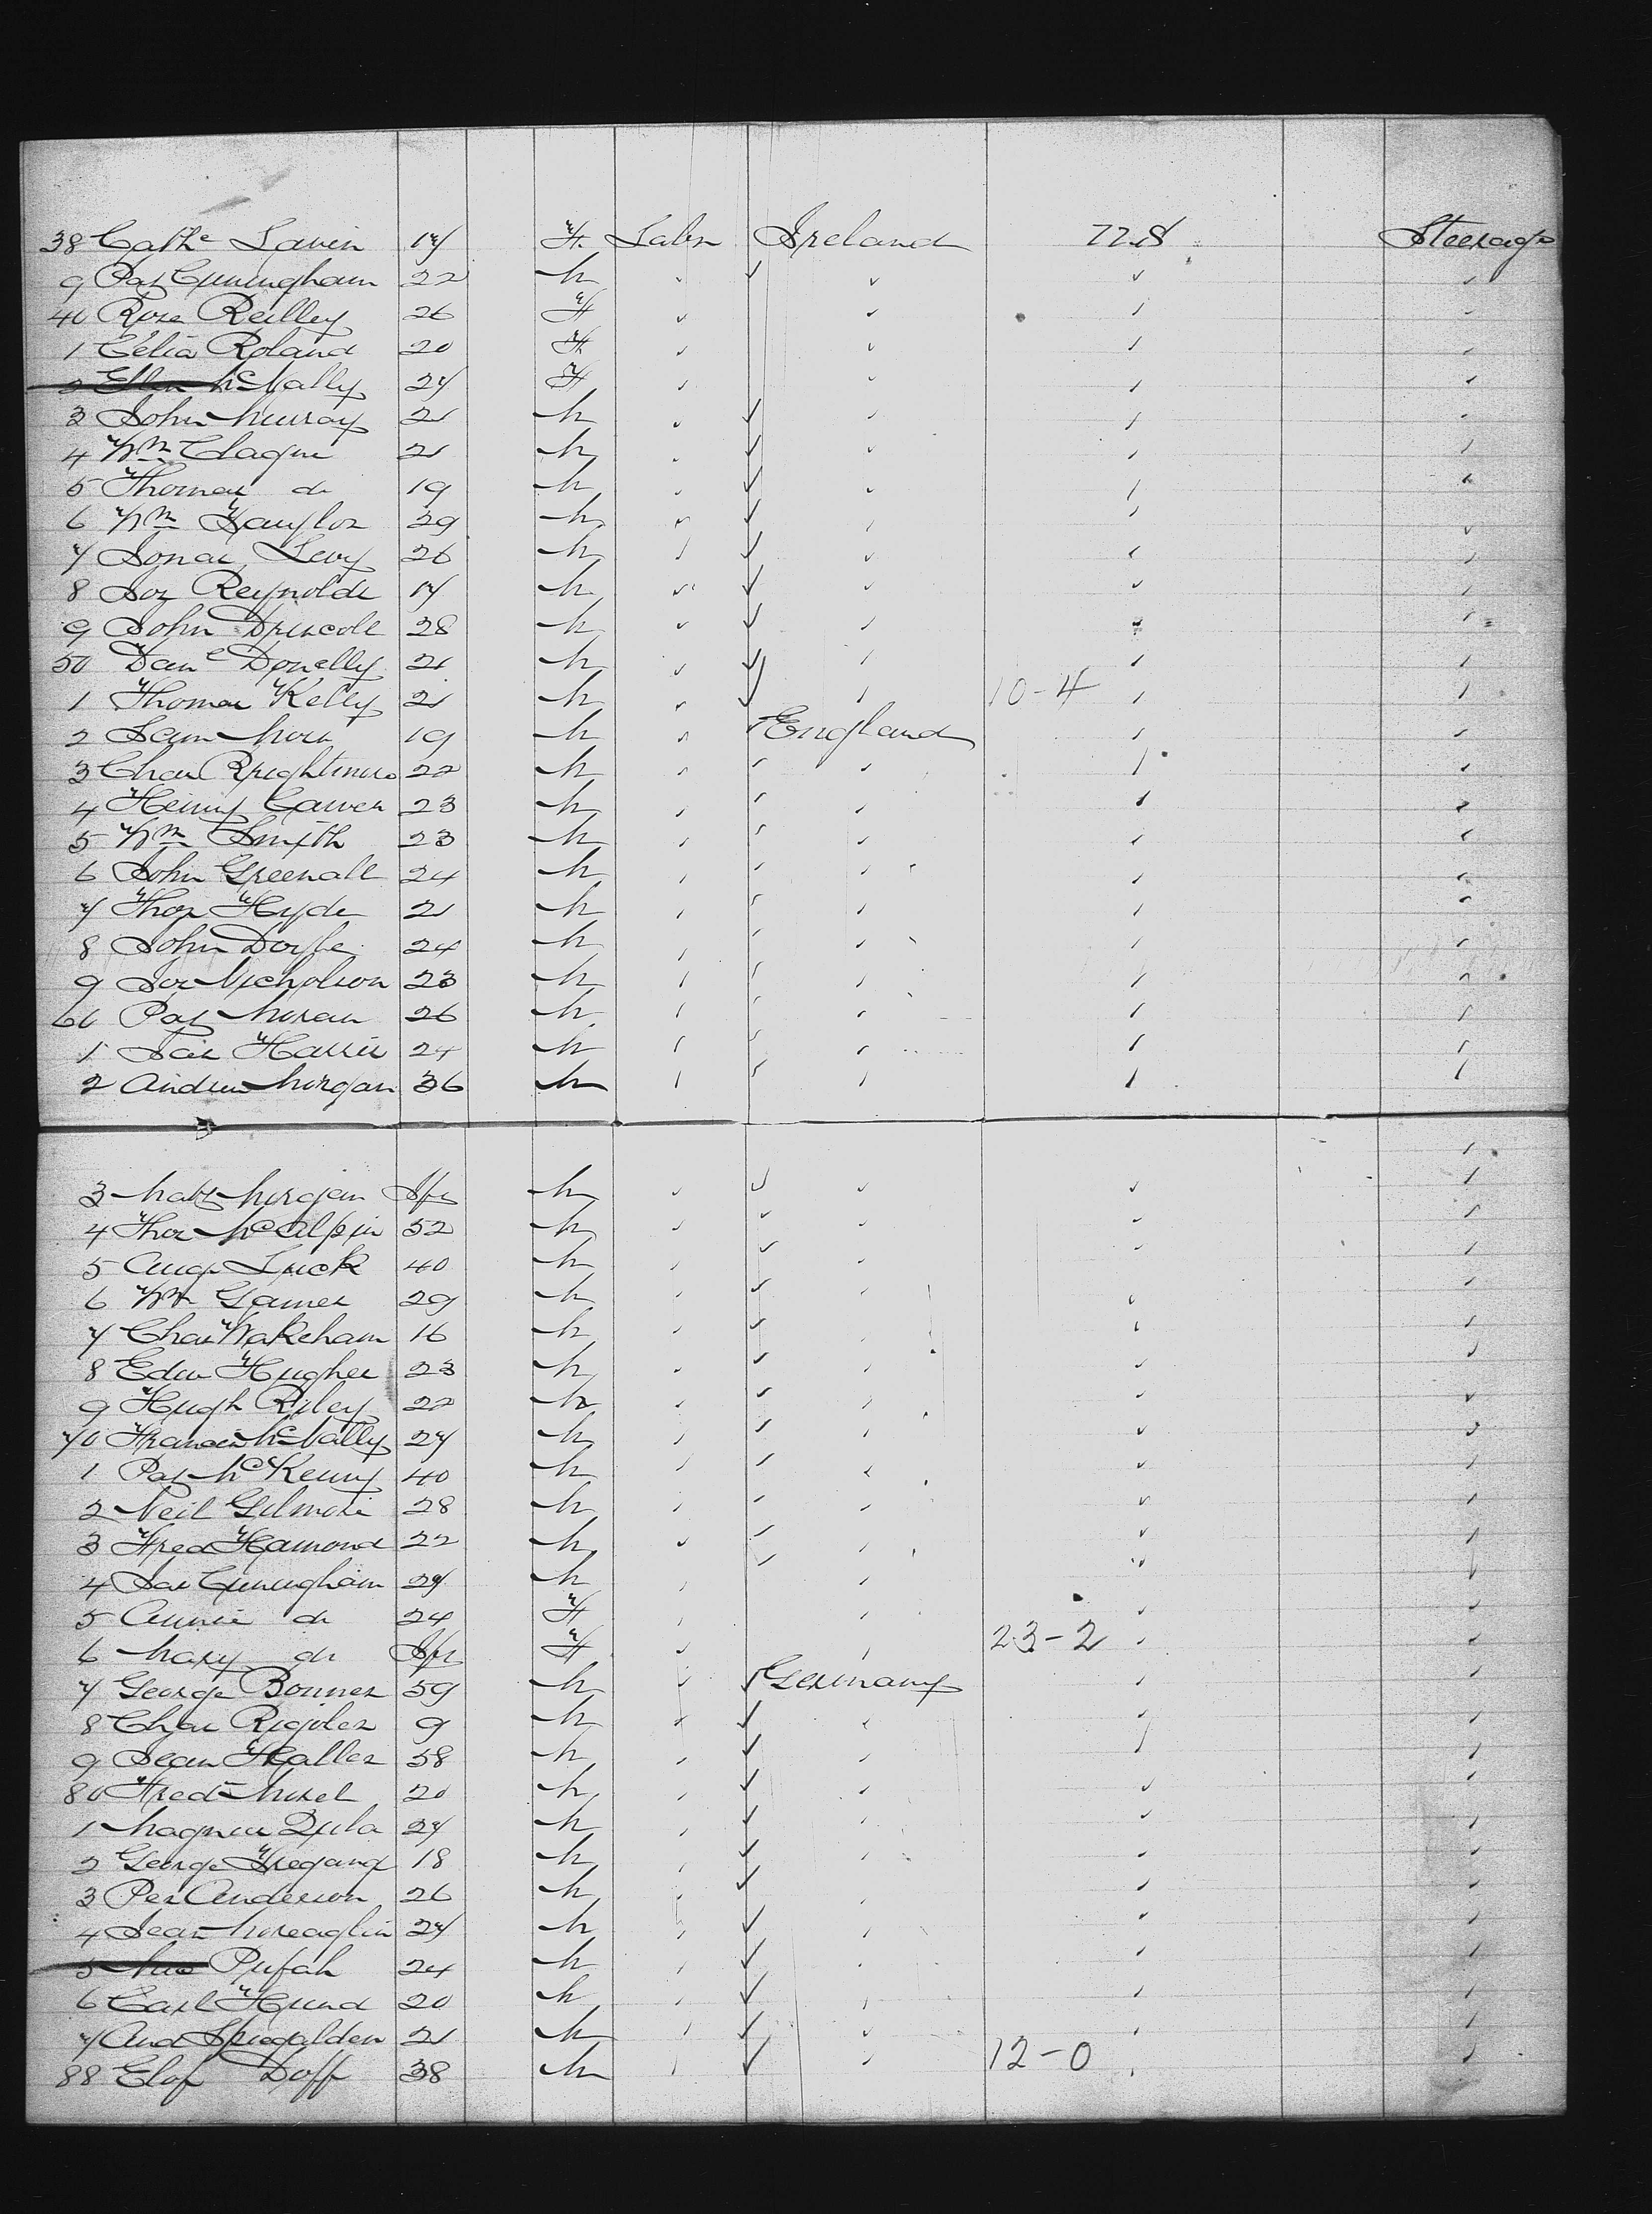 38 Cathe Lavin 17 F. Labr Ireland U.S Steerage
9 Pat Cuningham 22 M
40 Rose Reilley 26 F
1 Celia Roland 20 F.
2 Ellen McNally 27 F
3 John Murray 21 M
4 Wm Clague 21 M
5 Thomas do 19 M
6 Wm Taylor 29 M
7 Jonas Levy 26 M
8 Jos Reynolds 17 M
9 John Driscoll 28 M
50 Danl Donelly 21 M
1 Thomas Kelly 21 M 10-4
2 Sam 19 M England
3 Chas 22 M
4 Henry Carver 23 M
5 Wm Smith 23 M
6 John Greenall 24 M
7 Thos Hyde 21 M
8 John Doyle 24 M
9 Jos Nicholson 23 M
60 Pat Moran 26 M
1 Jas Harris 24 M
2 Andrew Morgan 36 M
3 Morgan Inf M
4 Thos McAlpin 52 M
5 Aug Luck 40 M
6 Wm Games 29 M
7 Chas Wakeham 16 M
8 Edw Hughes 23 M
9 Hugh Riley 22 M
70 Francis McNally 27 M
1 Pat McKenny 40 M
2 Neil Gilmore 28 M
3 Fred Hamond 22 M
4 Jas Cuningham 27 M
5 Annie do 24 F
6 Mary do Inf F 23-2
7 George Bonner 59 M Germany
8 Chas Rigoler 9 M
9 Jean Haller 58 M
80 Fred Morel 20 M
1 Magnus 27 M
2 George 18 M
3 Per Anderson 26 M
4 Jean 27 M
5 Pufah 24 M
6 Carl Hund 20 M
7 And 21 M
88 Elof Doff 38 M 12-0